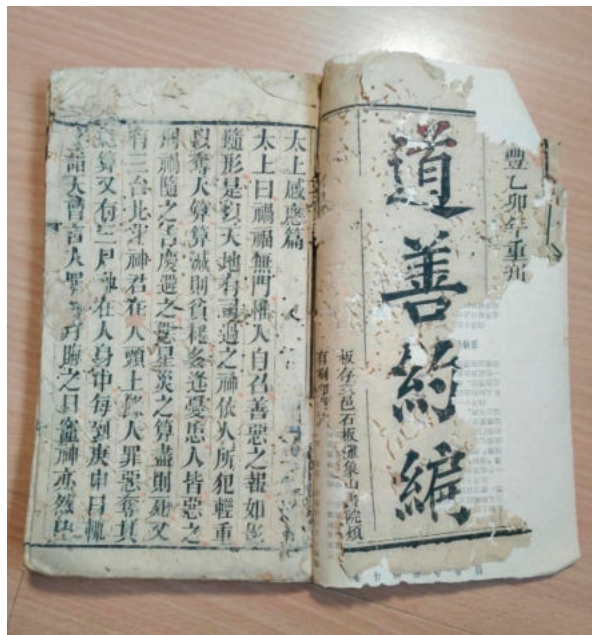 豐乙卯年重刊
道善約編
板存邑石板灘象山書院煩
有刷印者
太上感應篇
太上曰禍福無門惟人自召善惡之報如影
隨形是以天地有司過之神依人所犯輕重
以奪人算算減則貧耗多逢憂患人皆惡之
刑禍隨之吉慶避之惡星災之算盡則死又
有三台北斗神君在人頭上錄人罪惡奪其
紀算又有三尸神在人身中每到庚申日輒
詣天曹言人罪過月晦之日竈神亦然凡